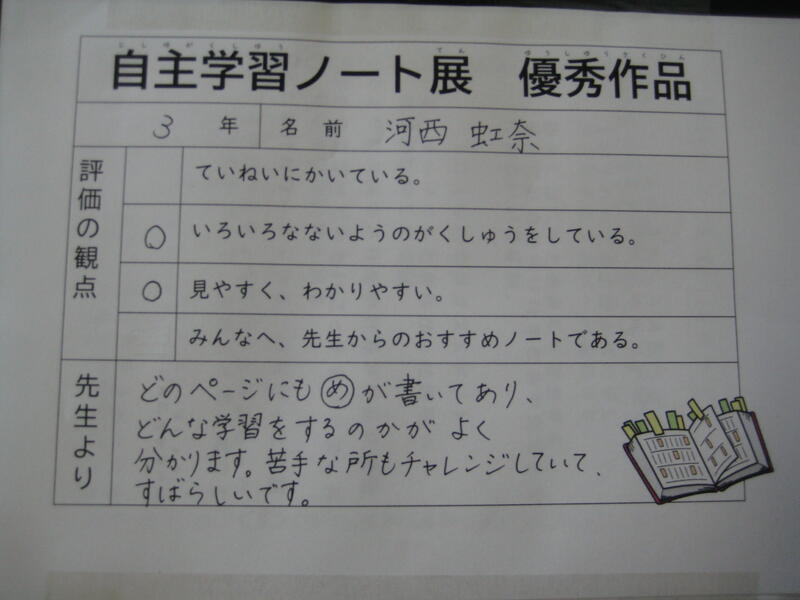 じしゅがくしゅう てん ゆうしゅうさくひん
自主学習ノート展 優秀作品
3 年 名前 河西 虹奈
評価の観点
ていねいにかいている。
○ いろいろなないようのがくしゅうをしている。
○ 見やすく、わかりやすい。
みんなへ、先生からのおすすめノートである。
先生より
どのページにも㋱が書いてあり、
どんな学習をするのかが よく
分かります。苦手な所もチャレンジしていて、
すばらしいです。